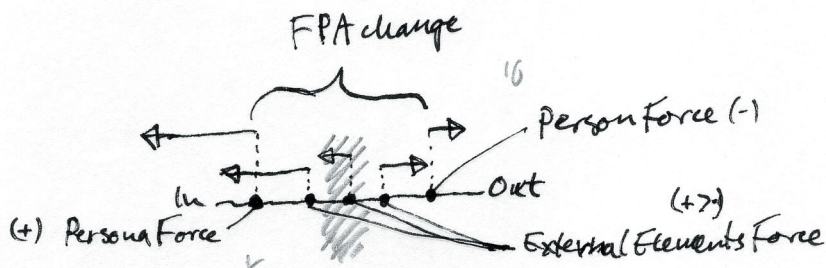 FPA change
10
Person Force (-)
In
Out
(+>)
(+) Persona Force
External Elements Force